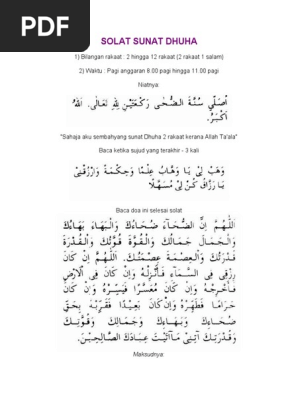 PDF
SOLAT SUNAT DHUHA
1) Bilangan rakaat : 2 hingga 12 rakaat (2 rakaat 1 salam)
2) Waktu : Pagi anggaran 8.00 pagi hingga 11.00 pagi
Niatnya:
اُصَلِّى سُنَّةَ الضُّحَى رَكْعَتَيْنِ لِلّٰهِ تَعَالَى. اَللّٰهُ
اَكْبَرُ.
"Sahaja aku sembahyang sunat Dhuha 2 rakaat kerana Allah Ta'ala"
Baca ketika sujud yang terakhir - 3 kali
وَهَبْ لِيْ يَا وَهَّابُ عِلْمًا وَحِكْمَةً وَارْزُقْنِيْ
يَا رَزَّاقُ كُنْ لِيْ مُسَهِّلًا
Baca doa ini selesai solat
اَللّٰهُمَّ إِنَّ الضُّحَآءَ ضُحَاءُكَ وَالْبَهَاءَ بَهَاءُكَ
وَالْجَمَالَ جَمَالُكَ وَالْقُوَّةَ قُوَّتُكَ وَالْقُدْرَةَ
قُدْرَتُكَ وَالْعِصْمَةَ عِصْمَتُكَ. اَللّٰهُمَّ إِنْ كَانَ
رِزْقِى فِى السَّمَآءِ فَأَنْزِلْهُ وَإِنْ كَانَ فِى الْأَرْضِ
فَأَخْرِجْهُ وَإِنْ كَانَ مُعَسَّرًا فَيَسِّرْهُ وَإِنْ كَانَ
حَرَامًا فَطَهِّرْهُ وَإِنْ كَانَ بَعِيْدًا فَقَرِّبْهُ بِحَقِّ
ضُحَاءِكَ وَبَهَاءِكَ وَجَمَالِكَ وَقُوَّتِكَ
وَقُدْرَتِكَ آتِنِى مَآأَتَيْتَ عِبَادَكَ الصَّالِحِيْنَ.
Maksudnya: